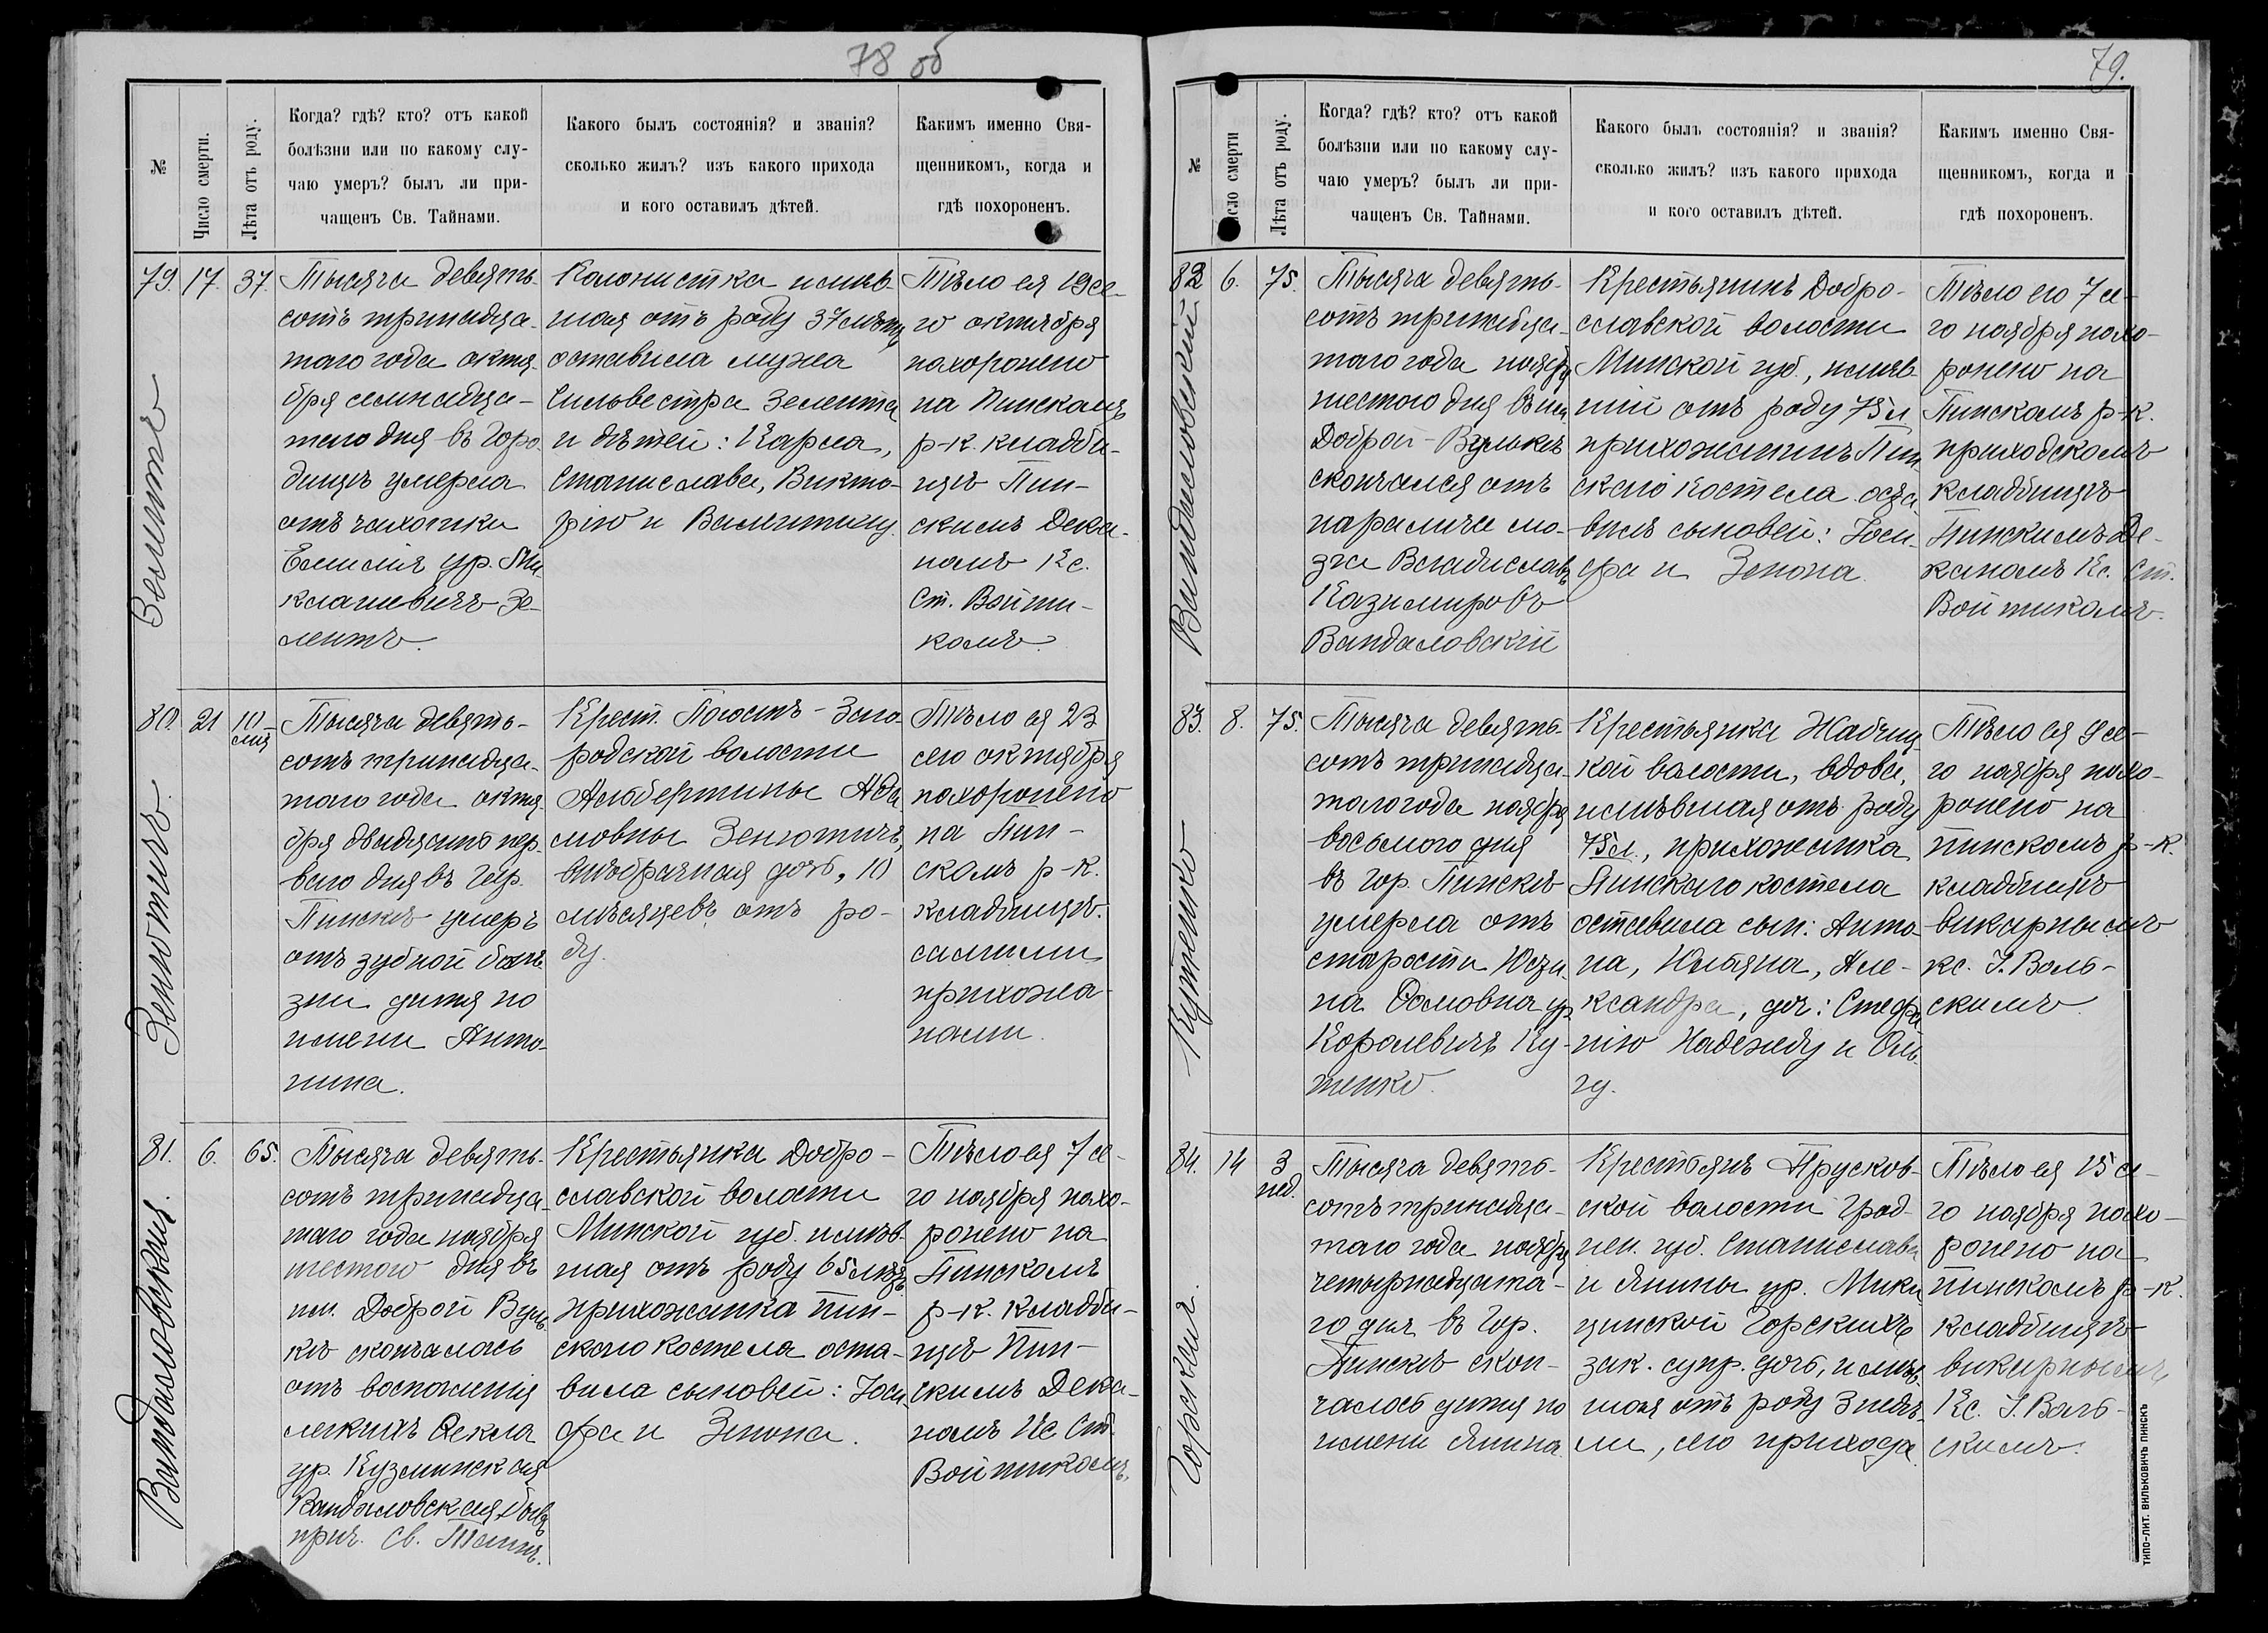 78 об
№
Число смерти.
Лѣта отъ роду.
Когда? гдѣ? кто? отъ какой
болѣзни или по какому слу-
чаю умеръ? былъ ли при-
чащенъ Св. Тайнами.
Какого былъ состоянія? и званія?
сколько жилъ? изъ какого прихода
и кого оставилъ дѣтей.
Какимъ именно Свя-
щенникомъ, когда и
гдѣ похороненъ.
79. 17. 37.
Зелентъ
Тысяча девять-
сотъ тринадца-
таго года октя-
бря семнадца-
таго дня въ Горо-
дищѣ умерла
отъ чахотки
Емилія ур. Ми
клашевичъ Зе-
лентъ.
Колонистка имѣв-
шая отъ роду 37 лѣтъ
оставила мужа
Сильвестра Зелента
и дѣтей: Карла,
Станислава, Викто-
рію и Валентину.
Тѣло ея 19 се-
го октября
похоронено
на Пинскомъ
р-к. кладби-
щѣ Пин-
скимъ Дека-
номъ Кс.
Ст. Войти-
комъ.
80. 21 10 мѣс
Зенютичъ
Тысяча девять-
сотъ тринадца-
таго года октя-
бря двадцать пер-
ваго дня въ Гор.
Пинскѣ умеръ
отъ зубной болѣ-
зни дитя по
имени Анто-
нина.
Крест. Погостъ-Заго-
родской волости
Альбертины Ада
мовны Зенютичъ,
внѣбрачная дочь, 10
мѣсяцевъ отъ ро-
ду.
Тѣло ея 23
сего октября
похоронено
на Пин-
скомъ р-к.
кладбищѣ.
самими
прихожа-
нами.
81. 6. 65.
Вандаловская.
Тысяча девять-
сотъ тринадца-
таго года ноября
шестого дня въ
им. Доброй Вуль-
кѣ скончалась
отъ воспаленія
легкихъ Ѳекла
ур. Кузминская
Вандаловская бывъ
прич. Св. Таинъ.
Крестьянка Добро-
славской волости
Минской губ. имѣв-
шая отъ роду 65 лѣтъ
прихожанка Пин-
скаго костела оста-
вила сыновей: Іоси
фа и Зенона.
Тѣло ея 7 се-
го ноября похо-
ронено на
Пинскомъ
р-к. кладби-
щѣ Пин-
скимъ Дека-
номъ Кс Ст.
Войтикомъ.
79.
№
Число смерти
Лѣта отъ роду.
Когда? гдѣ? кто? отъ какой
болѣзни или по какому слу-
чаю умеръ? былъ ли при-
чащенъ Св. Тайнами.
Какого былъ состоянія? и званія?
сколько жилъ? изъ какого прихода
и кого оставилъ дѣтей.
Какимъ именно Свя-
щенникомъ, когда и
гдѣ похороненъ.
82 6. 75.
Вандаловскій
Тысяча девять-
сотъ тринадца-
таго года ноября
шестого дня въ им.
Доброй-Вулькѣ
скончался отъ
паралича мо-
зга Владиславъ
Казимировъ
Вандаловскій
Крестьянинъ Добро-
славской волости
Минской губ., имѣв-
шій отъ роду 75 л
прихожанинъ Пин
скаго костела оста
вилъ сыновей: Іоси-
фа и Зенона.
Тѣло его 7 се-
го ноября похо-
ронено на
Пинскомъ р-к.
приходскомъ
кладбищѣ
Пинскимъ Де-
каномъ Кс. Ст.
Войтикомъ.
83. 8. 75.
Кутенко
Тысяча девять-
сотъ тринадца-
таго года ноября
восьмого дня
въ гор. Пинскѣ
умерла отъ
старости Юзи-
на Осиовна ур
Королевичъ Ку-
тенко.
Крестьянка Жабчиц
кой волости, вдова,
имѣвшая отъ роду
75 л., прихожанка
Пинскаго костела
оставила сын: Анто-
на, Юльяна, Але-
ксандра, доч: Стефа
нію Надежду и Оль-
гу.
Тѣло ея 9 се-
го ноября похо-
ронено на
пинскомъ р-к.
кладбищѣ
викарнымъ
кс. І. Воль-
скимъ
84. 14 3 нед.
Горская.
Тысяча девять-
сотъ тринадца-
таго года ноября
четырнадцата-
го дня въ Гор.
Пинскѣ скон-
чалось дитя по
имени Янина.
Крестьянъ Прусков-
ской волости Грод-
нен. губ. Станислава
и Янины ур. Мика
цинской Горскихъ
зак. супр. дочь, имѣв
шая отъ роду 3 недѣ-
ли, сего прихода.
Тѣло ея 15 се-
го ноября похо-
ронено на
пинскомъ р-к.
кладбищѣ
викарнымъ
Кс. І. Воль-
скимъ.
ТИПО-ЛИТ. ВИЛЬКОВИЧЪ ПИНСКЪ